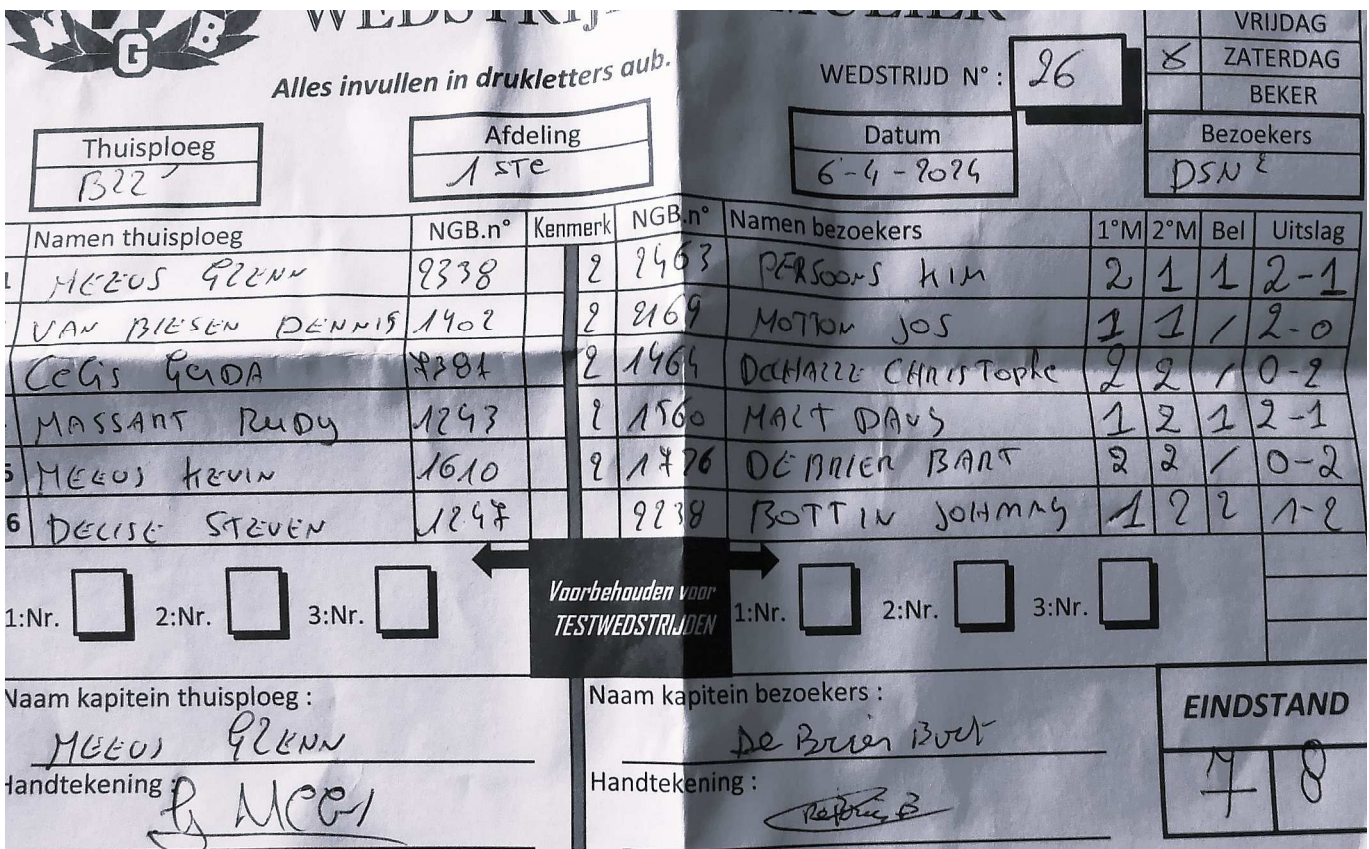 NGB
Alles invullen in drukletters aub.
WEDSTRIJD N° : 26
VRIJDAG
X ZATERDAG
BEKER
Thuisploeg
B22
Afdeling
1 STE
Datum
6-4-2024
Bezoekers
DSN
Namen thuisploeg NGB.n° Kenmerk NGB.n° Namen bezoekers 1°M 2°M Bel Uitslag
MEEUS GLENN 2338 2 2463 PERSOONS KIM 2 1 1 2-1
VAN BIESEN DENNIS 1402 2 2169 MOTTON JOS 1 1 / 2-0
CEGIS GERDA 2 1464 CHRISTOPHE 2 2 / 0-2
MASSANT RUDY 1243 2 1560 MALT DAVY 1 2 1 2-1
5 MEEUS KEVIN 1610 2 1776 DE BRIER BART 2 2 / 0-2
6 DELISE STEVEN 1247 2238 BOTTIN JOHNNY 1 2 2 1-2
1:Nr. 2:Nr. 3:Nr.
Voorbehouden voor
TESTWEDSTRIJDEN
1:Nr. 2:Nr. 3:Nr.
Naam kapitein thuisploeg :
MEEUS GLENN
Handtekening :
G MEES
Naam kapitein bezoekers :
De Brier Bart
Handtekening :
EINDSTAND
7 8